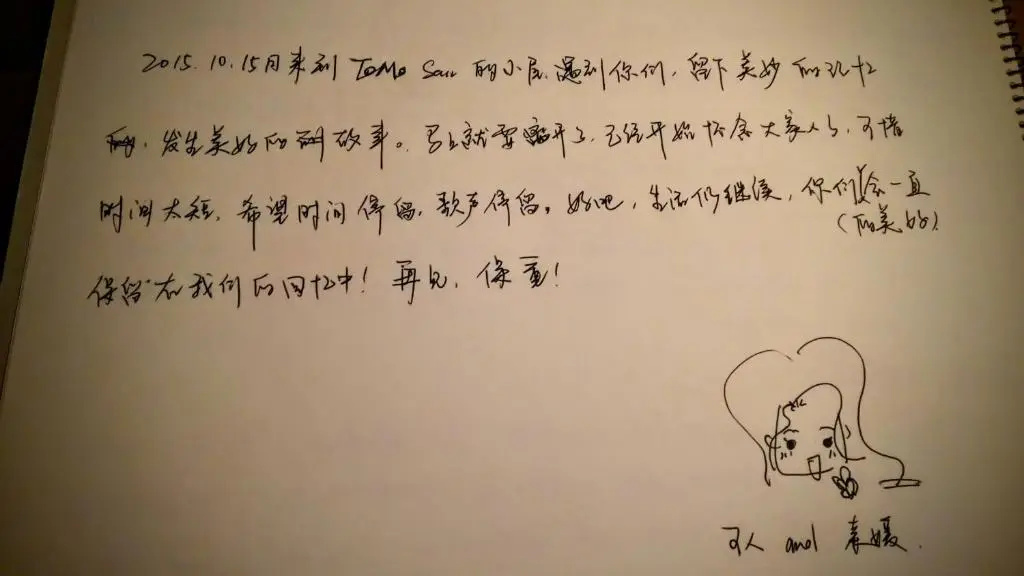 2015.10.15日来到 ToMo San 的小屋.遇到你们,留下美妙的记忆
发生美好的故事。马上就要离开了,已经开始怀念大家人了,可惜
时间太短,希望时间停留,歌声停留。好吧,生活仍继续,你们会一直
(有美好)
保留在我们的回忆中!再见,保重!
可人 and